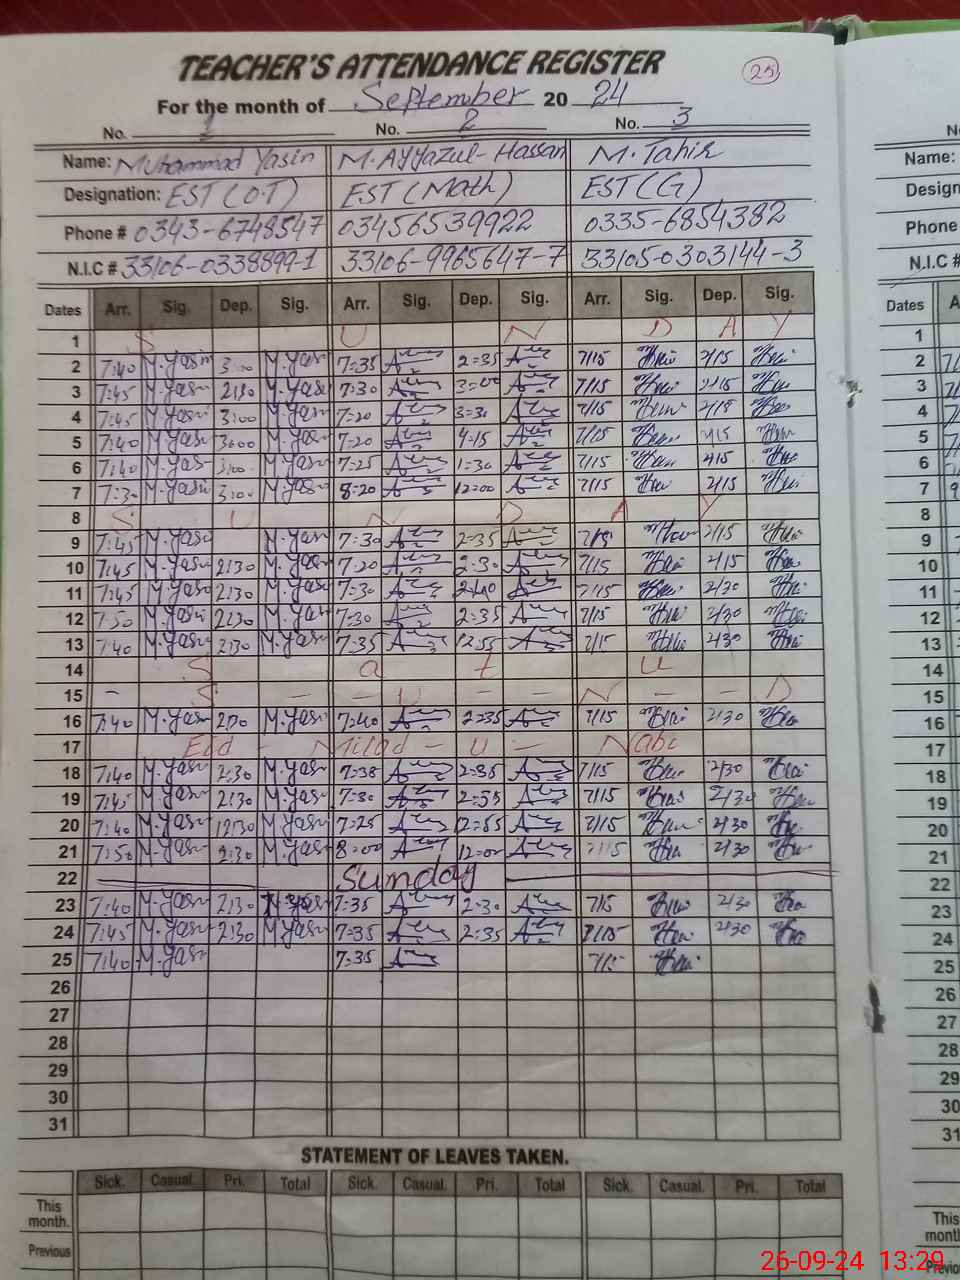 TEACHER'S ATTENDANCE REGISTER
25
For the month of September 20 24
No. 1 No. 2 No. 3
Name: Muhammad Yasin M. Ayyazul-Hassan M. Tahir
Designation: EST (O.T) EST (Math) EST (G)
Phone # 0343-6748547 03456539922 0335-6854382
N.I.C # 33106-0338899-1 33106-9965647-7 33105-0303144-3
Dates Arr. Sig. Dep. Sig. Arr. Sig. Dep. Sig. Arr. Sig. Dep. Sig.
1 S U N D A Y
2 7:40 M.Yasin 3:00 M.Yasin 7=35 2=35 7/15 2/15
3 7:45 M.Yasin 2:30 M.Yasin 7=30 3=00 7/15 2/15
4 7:45 M.Yasin 3:00 M.Yasin 7=20 3=30 7/15 2/15
5 7:40 M.Yasin 3:00 M.Yasin 7=20 4=15 7/15 2/15
6 7:40 M.Yasin 3:00 M.Yasin 7=25 1=30 7/15
7 7:30 M.Yasin 3:00 M.Yasin 8=20 12=00 7/15 2/15
8 S U N D A Y
9 7:45 M.Yasin M.Yasin 7=30 2=35 7/15 2/15
10 7:45 M.Yasin 2:30 M.Yasin 7=20 2=30 7/15 2/15
11 7:45 M.Yasin 2:30 M.Yasin 7=30 2=40 7/15 2/30
12 7:50 M.Yasin 2:30 M.Yasin 7=30 2=35 7/15 2/30
13 7:40 M.Yasin 2:30 M.Yasin 7=35 12=55 7/15 2/30
14 S a t u
15 - S - - U - - N - - D
16 7:40 M.Yasin M.Yasin 7=40 2=35 7/15 2/30
17 Eid - Milad - u - Nabi
18 7:40 M.Yasin 2:30 M.Yasin 7=35 2=35 7/15 2/30
19 7:45 M.Yasin 2:30 M.Yasin 7=30 2=55 7/15 2/30
20 7:40 M.Yasin 12:30 M.Yasin 7=25 12=55 7/15 2/30
21 7:50 M.Yasin 2:30 M.Yasin 8=00 12=00 7/15 2/30
22 Sunday
23 7:40 M.Yasin 2:30 M.Yasin 7=35 2=30 7/15 2/30
24 7:45 M.Yasin 2:30 M.Yasin 7=35 2=35 7/15 2/30
25 7:40 M.Yasin 7=35 7/15
26
27
28
29
30
31
STATEMENT OF LEAVES TAKEN.
Sick. Casual. Pri. Total Sick. Casual. Pri. Total Sick. Casual. Pri. Total
This month.
Previous
Name:
Phone
N.I.C #
Dates
1
2
3
4
5
6
7
8
9
10
11
12
13
14
15
16
17
18
19
20
21
22
23
24
25
26
27
28
29
30
31
This
26-09-24 13:29